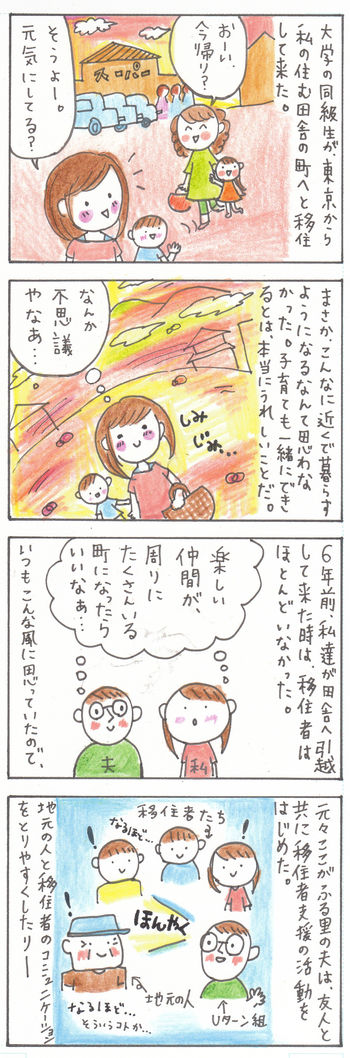 大学の同級生が、東京から
私の住む田舎の町へと移住
して来た。
おーい、
今帰り？
スーパー
そうよー。
元気にしてる？
まさか、こんなに近くで暮らす
ようになるなんて思わな
かった。子育ても一緒にでき
るとは、本当にうれしいことだ。
なんか
不思議
やなぁ…
しみ
じみ…
6年前、私達が田舎へ引越
して来た時は、移住者は
ほとんどいなかった。
楽しい
仲間が、
周りに
たくさんいる
町になったら
いいなぁ…
私
夫
いつもこんな風に思っていたので、
元々ここがふる里の夫は、友人と
共に移住者支援の活動を
はじめた。
移住者たち
なるほど…
!
!
ほんやく
!
地元の人
Uターン組
なるほど…
そういうコトか…
地元の人と移住者のコミュニケーション
をとりやすくしたりー